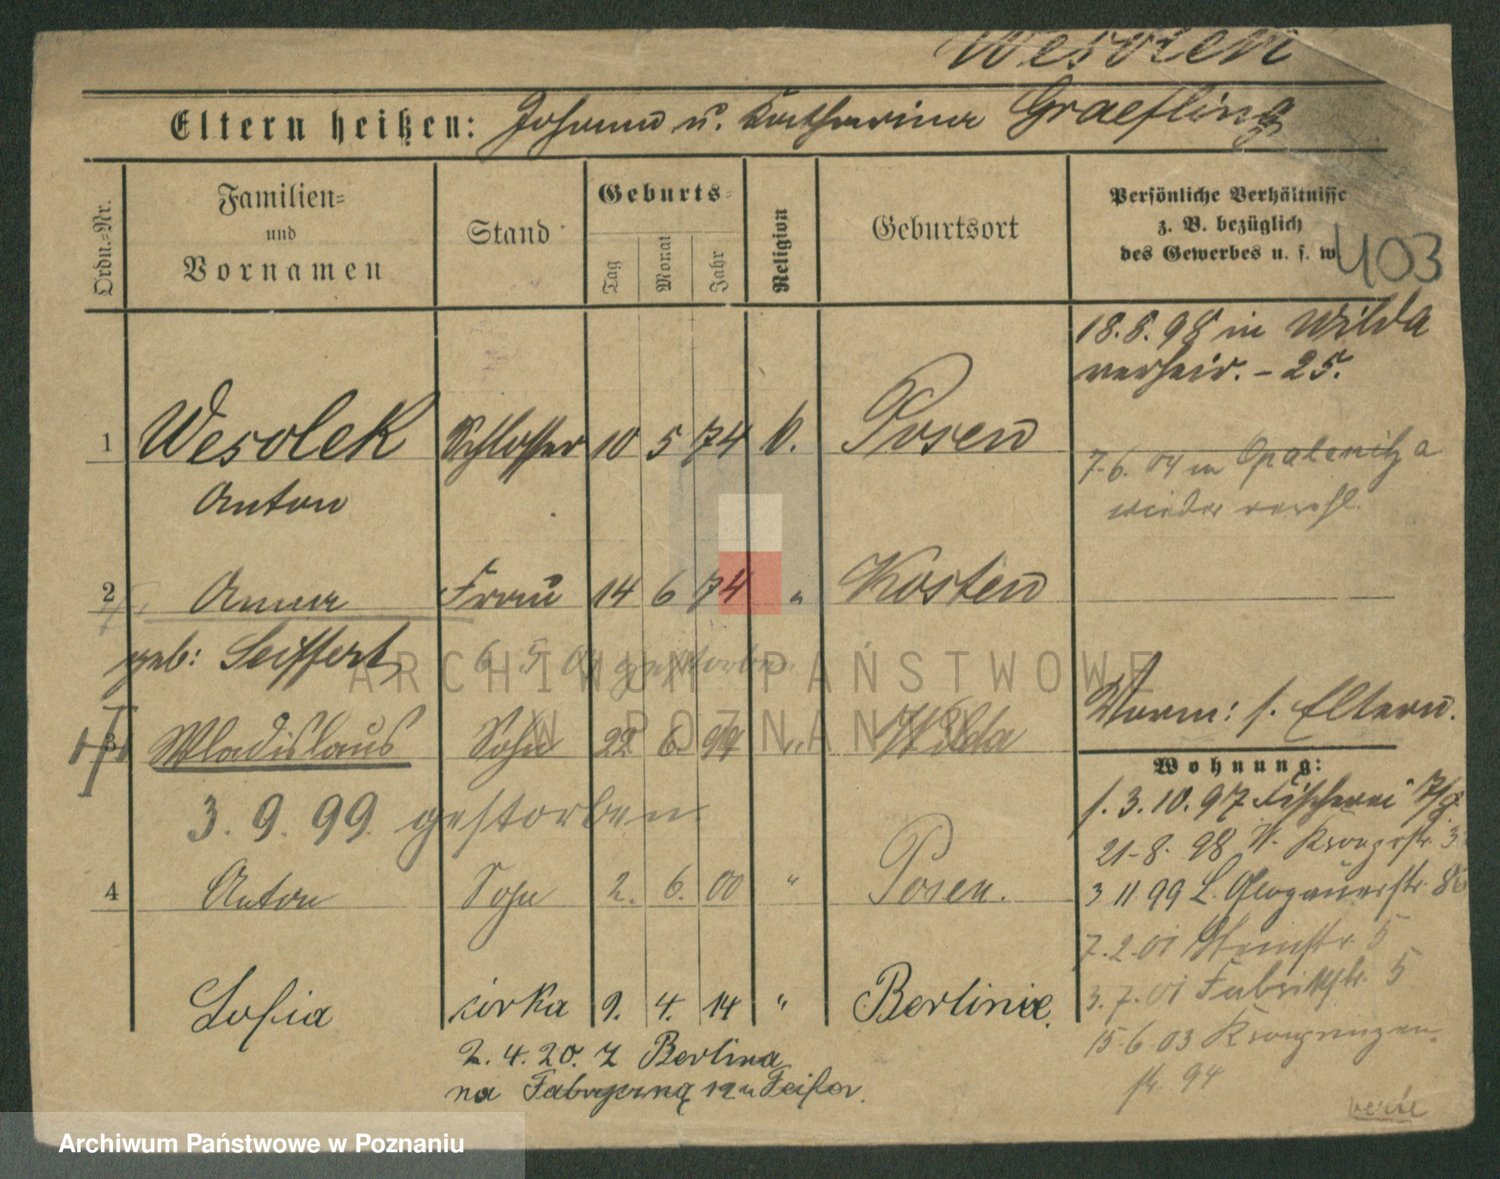 Wesolek
Eltern heißen: Johann u. Katharina Graefling
Ordn.-Nr.
Familien-
und
Vornamen
Stand
Geburts-
Tag
Monat
Jahr
Religion
Geburtsort
Persönliche Verhältnisse
z. B. bezüglich
des Gewerbes u. s. w.
403
18.8.98 in Wilda
verheir. - 25.
1 Wesolek Schlosser 10 5 74 k. Posen
Anton
7.6.04 in Opalenitza
wieder verehl.
2 Anna Frau 14 6 74 " Kosten
geb: Seiffert 6 5 gestorben
3 Wladislaus Sohn 22 6. 99 " Wilda
3. 9. 99 gestorben
Vorm: s. Eltern.
Wohnung:
s. 3.10.97 Fischerei 7/8
21-8. 98 W. Kronprstr. 3
3 11 99 L. Glogauerstr. 86
7.2.01 5
3.7.01 Fabrikstr. 5
15.6.03 Kronprinzen
str. 94
4 Anton Sohn 2. 6. 00 " Posen.
Sofia córka 9. 4. 14 " Berlinie.
2.4.20. z Berlina
na Fabryczną 12 u Feifer.
verte
ARCHIWUM PAŃSTWOWE
W POZNANIU
Archiwum Państwowe w Poznaniu